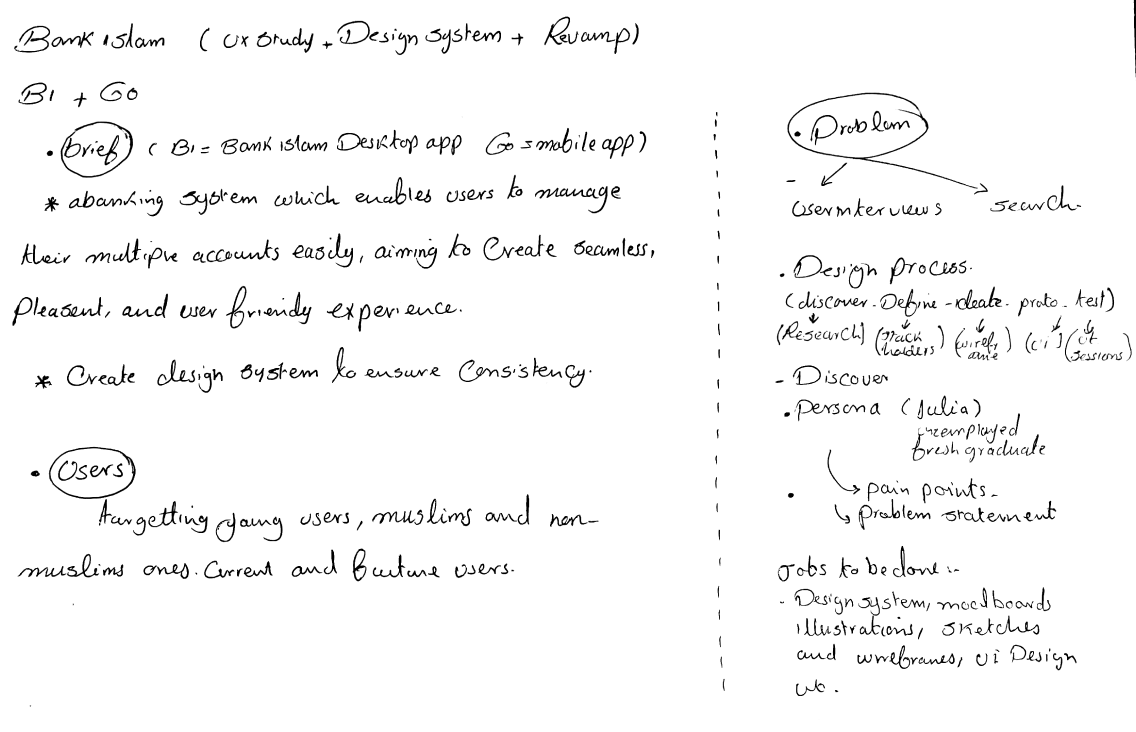 Bank islam ( Ux study + Design system + Revamp)
BI + Go
• brief ( BI = Bank islam Desktop app Go = mobile app)
* abanking system which enables users to manage
their multiple accounts easily, aiming to Create seamless,
Pleasent, and user friendly experience.
* Create design system to ensure Consistency.
• Users
targetting young users, muslims and non-
muslims ones. Current and future users.
• Problem
- user interviews search.
• Design process.
(discover - Define - ideate - proto - test)
(Research) (stack holders) (wirefr ame) (ui) (ut sessions)
- Discover
• persona (Julia)
unemployed
fresh graduate
• → pain points -
↳ problem statement
Jobs to be done :-
- Design system, moodboards
illustrations, sketches
and wireframes, ui Design